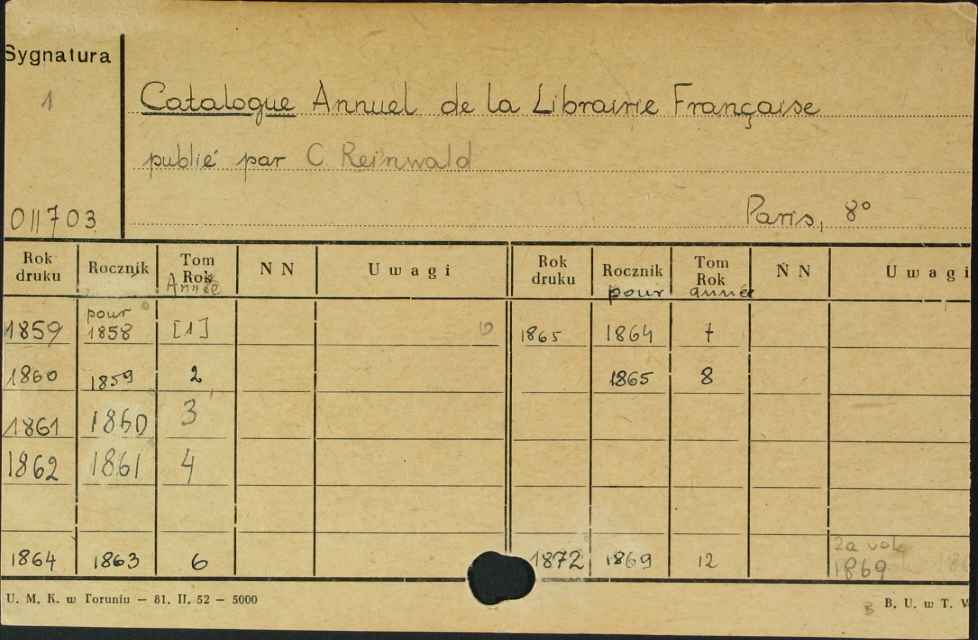 Sygnatura
1
Catalogue Annuel de la Librairie Française
publié par C Reinwald
Paris, 8°
011703
Rok druku Rocznik Tom Rok NN Uwagi Rok druku Rocznik Tom Rok NN Uwagi
Année pour année
pour
1859 1858 [1] 1865 1864 7
1860 1859 2 1865 8
1861 1860 3
1862 1861 4
1864 1863 6 1872 1869 12 za vol.
1869
U. M. K. w Toruniu — 81. II. 52 — 5000 B. U. w T. V